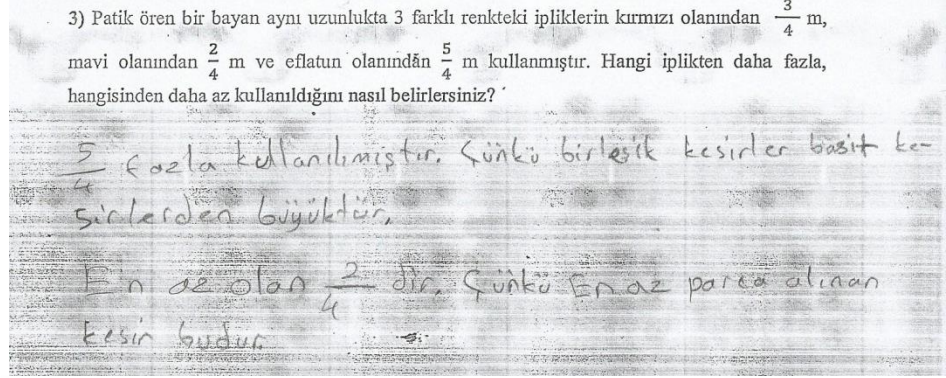 3) Patik ören bir bayan aynı uzunlukta 3 farklı renkteki ipliklerin kırmızı olanından 3/4 m,
mavi olanından 2/4 m ve eflatun olanından 5/4 m kullanmıştır. Hangi iplikten daha fazla,
hangisinden daha az kullanıldığını nasıl belirlersiniz?
5/4 fazla kullanılmıştır. Çünkü birleşik kesirler basit ke-
sirlerden büyüktür.
En az olan 2/4 dir. Çünkü En az parça alınan
kesir budur.